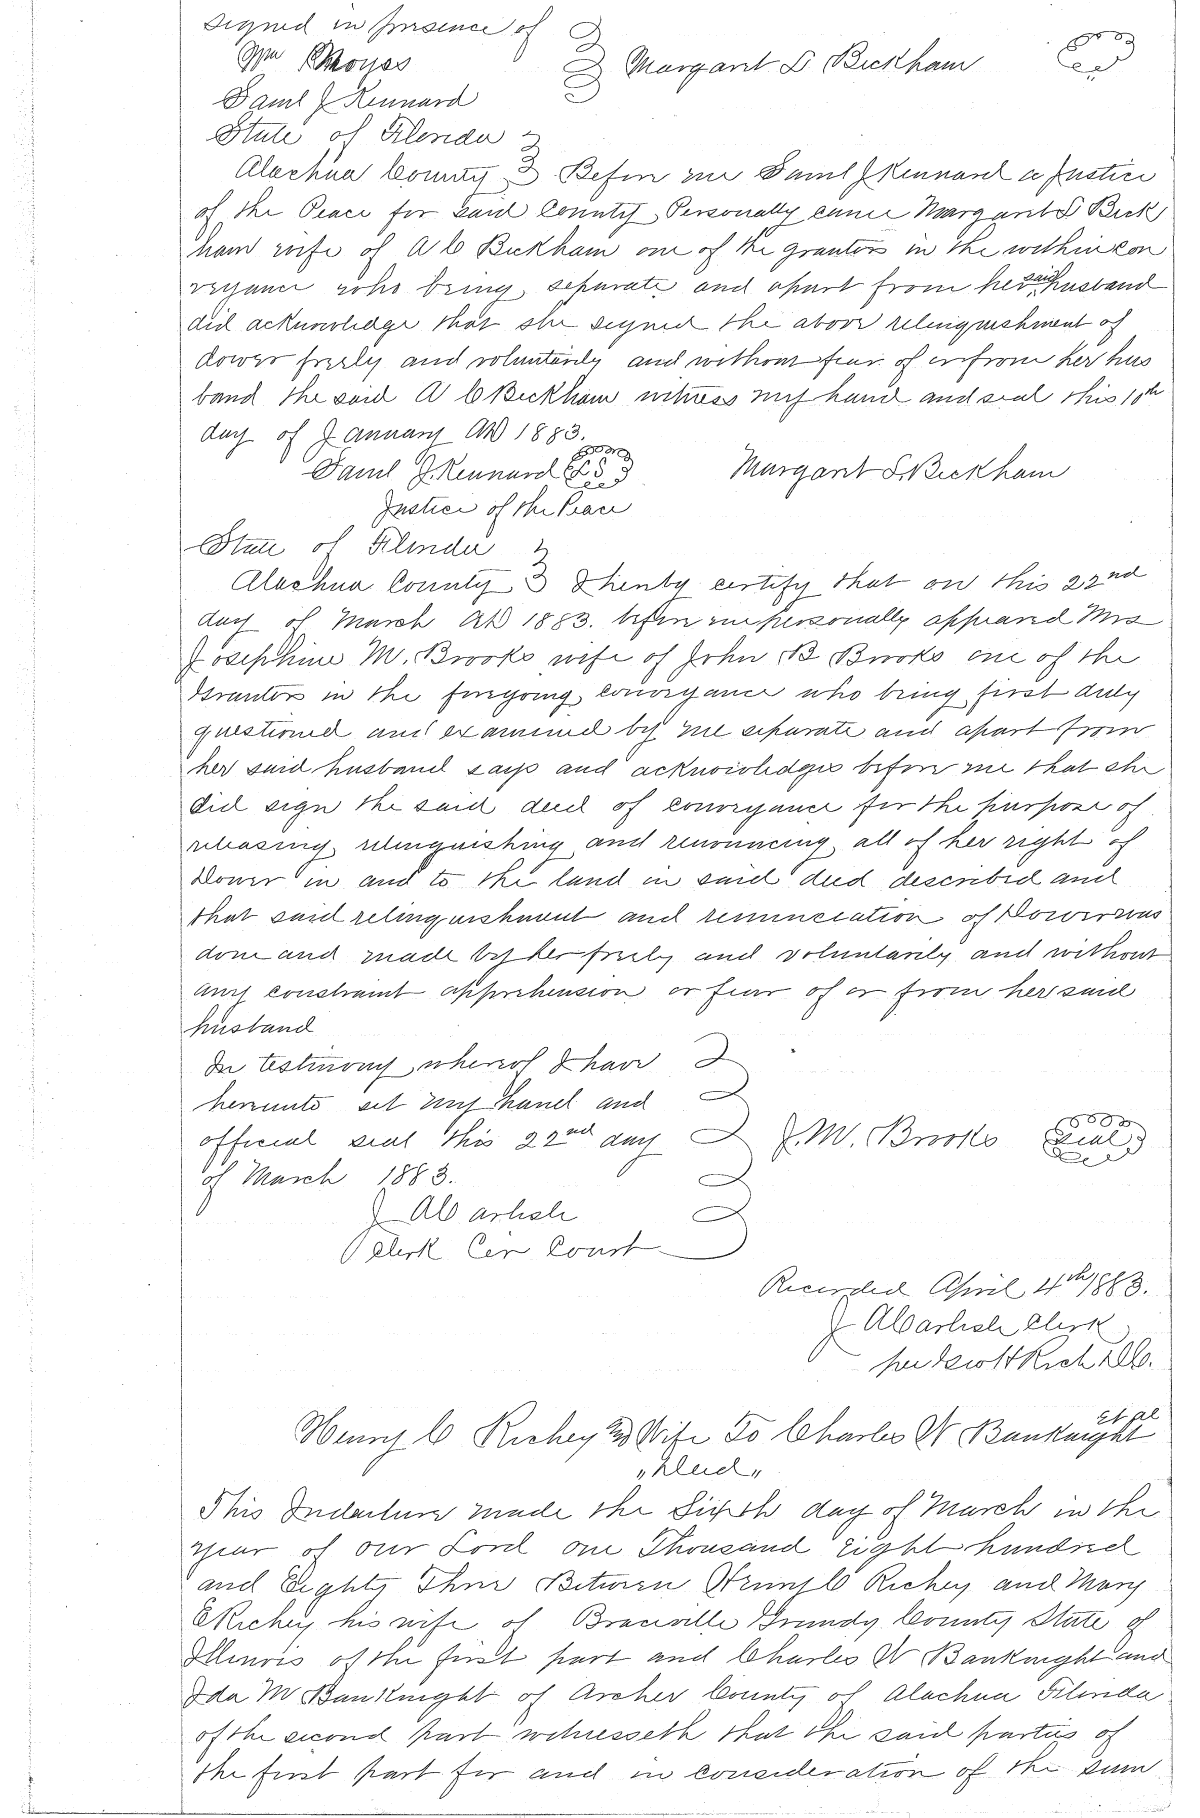 Signed in presence of
Wm Moyes
Margaret S Bickham
Saml J Kennard
State of Florida
Alachua County Before me Saml J Kennard a Justice
of the Peace for said County, Personally came Margaret S Bick
ham wife of A C Bickham one of the grantors in the within con
veyance who being separate and apart from her said husband
did acknowledge that she signed the above relinquishment of
dower freely and voluntarily and without fear of or from her hus
band the said A C Bickham witness my hand and seal this 10th
day of January AD 1883.
Saml J. Kennard L S Margaret S. Bickham
Justice of the Peace
State of Florida
Alachua County I hereby certify that on this 22nd
day of March AD 1883. before me personally appeared Mrs
Josephine M. Brooks wife of John B Brooks one of the
Grantors in the foregoing conveyance who being first duly
questioned and examined by me separate and apart from
her said husband says and acknowledges before me that she
did sign the said deed of conveyance for the purpose of
releasing, relinquishing and renouncing all of her right of
Dower in and to the land in said deed described and
that said relinquishment and renunciation of Dower was
done and made by her freely and voluntarily and without
any constraint apprehension or fear of or from her said
husband
In testimony whereof I have
hereunto set my hand and
official seal this 22nd day J. M. Brooks Seal
of March 1883.
J A Carlisle
Clerk Cir Court
Recorded April 4th 1883.
J A Carlisle Clerk
per Rich D.C.
Henry C Richey and Wife To Charles W Bauknight Et al
"Deed"
This Indenture made the Sixth day of March in the
year of our Lord one Thousand Eight hundred
and Eighty Three Between Henry C Richey and Mary
E Richey his wife of Braceville Grundy County State of
Illinois of the first part and Charles W Bauknight and
Ida M Bauknight of Archer County of Alachua Florida
of the second part witnesseth that the said parties of
the first part for and in consideration of the sum